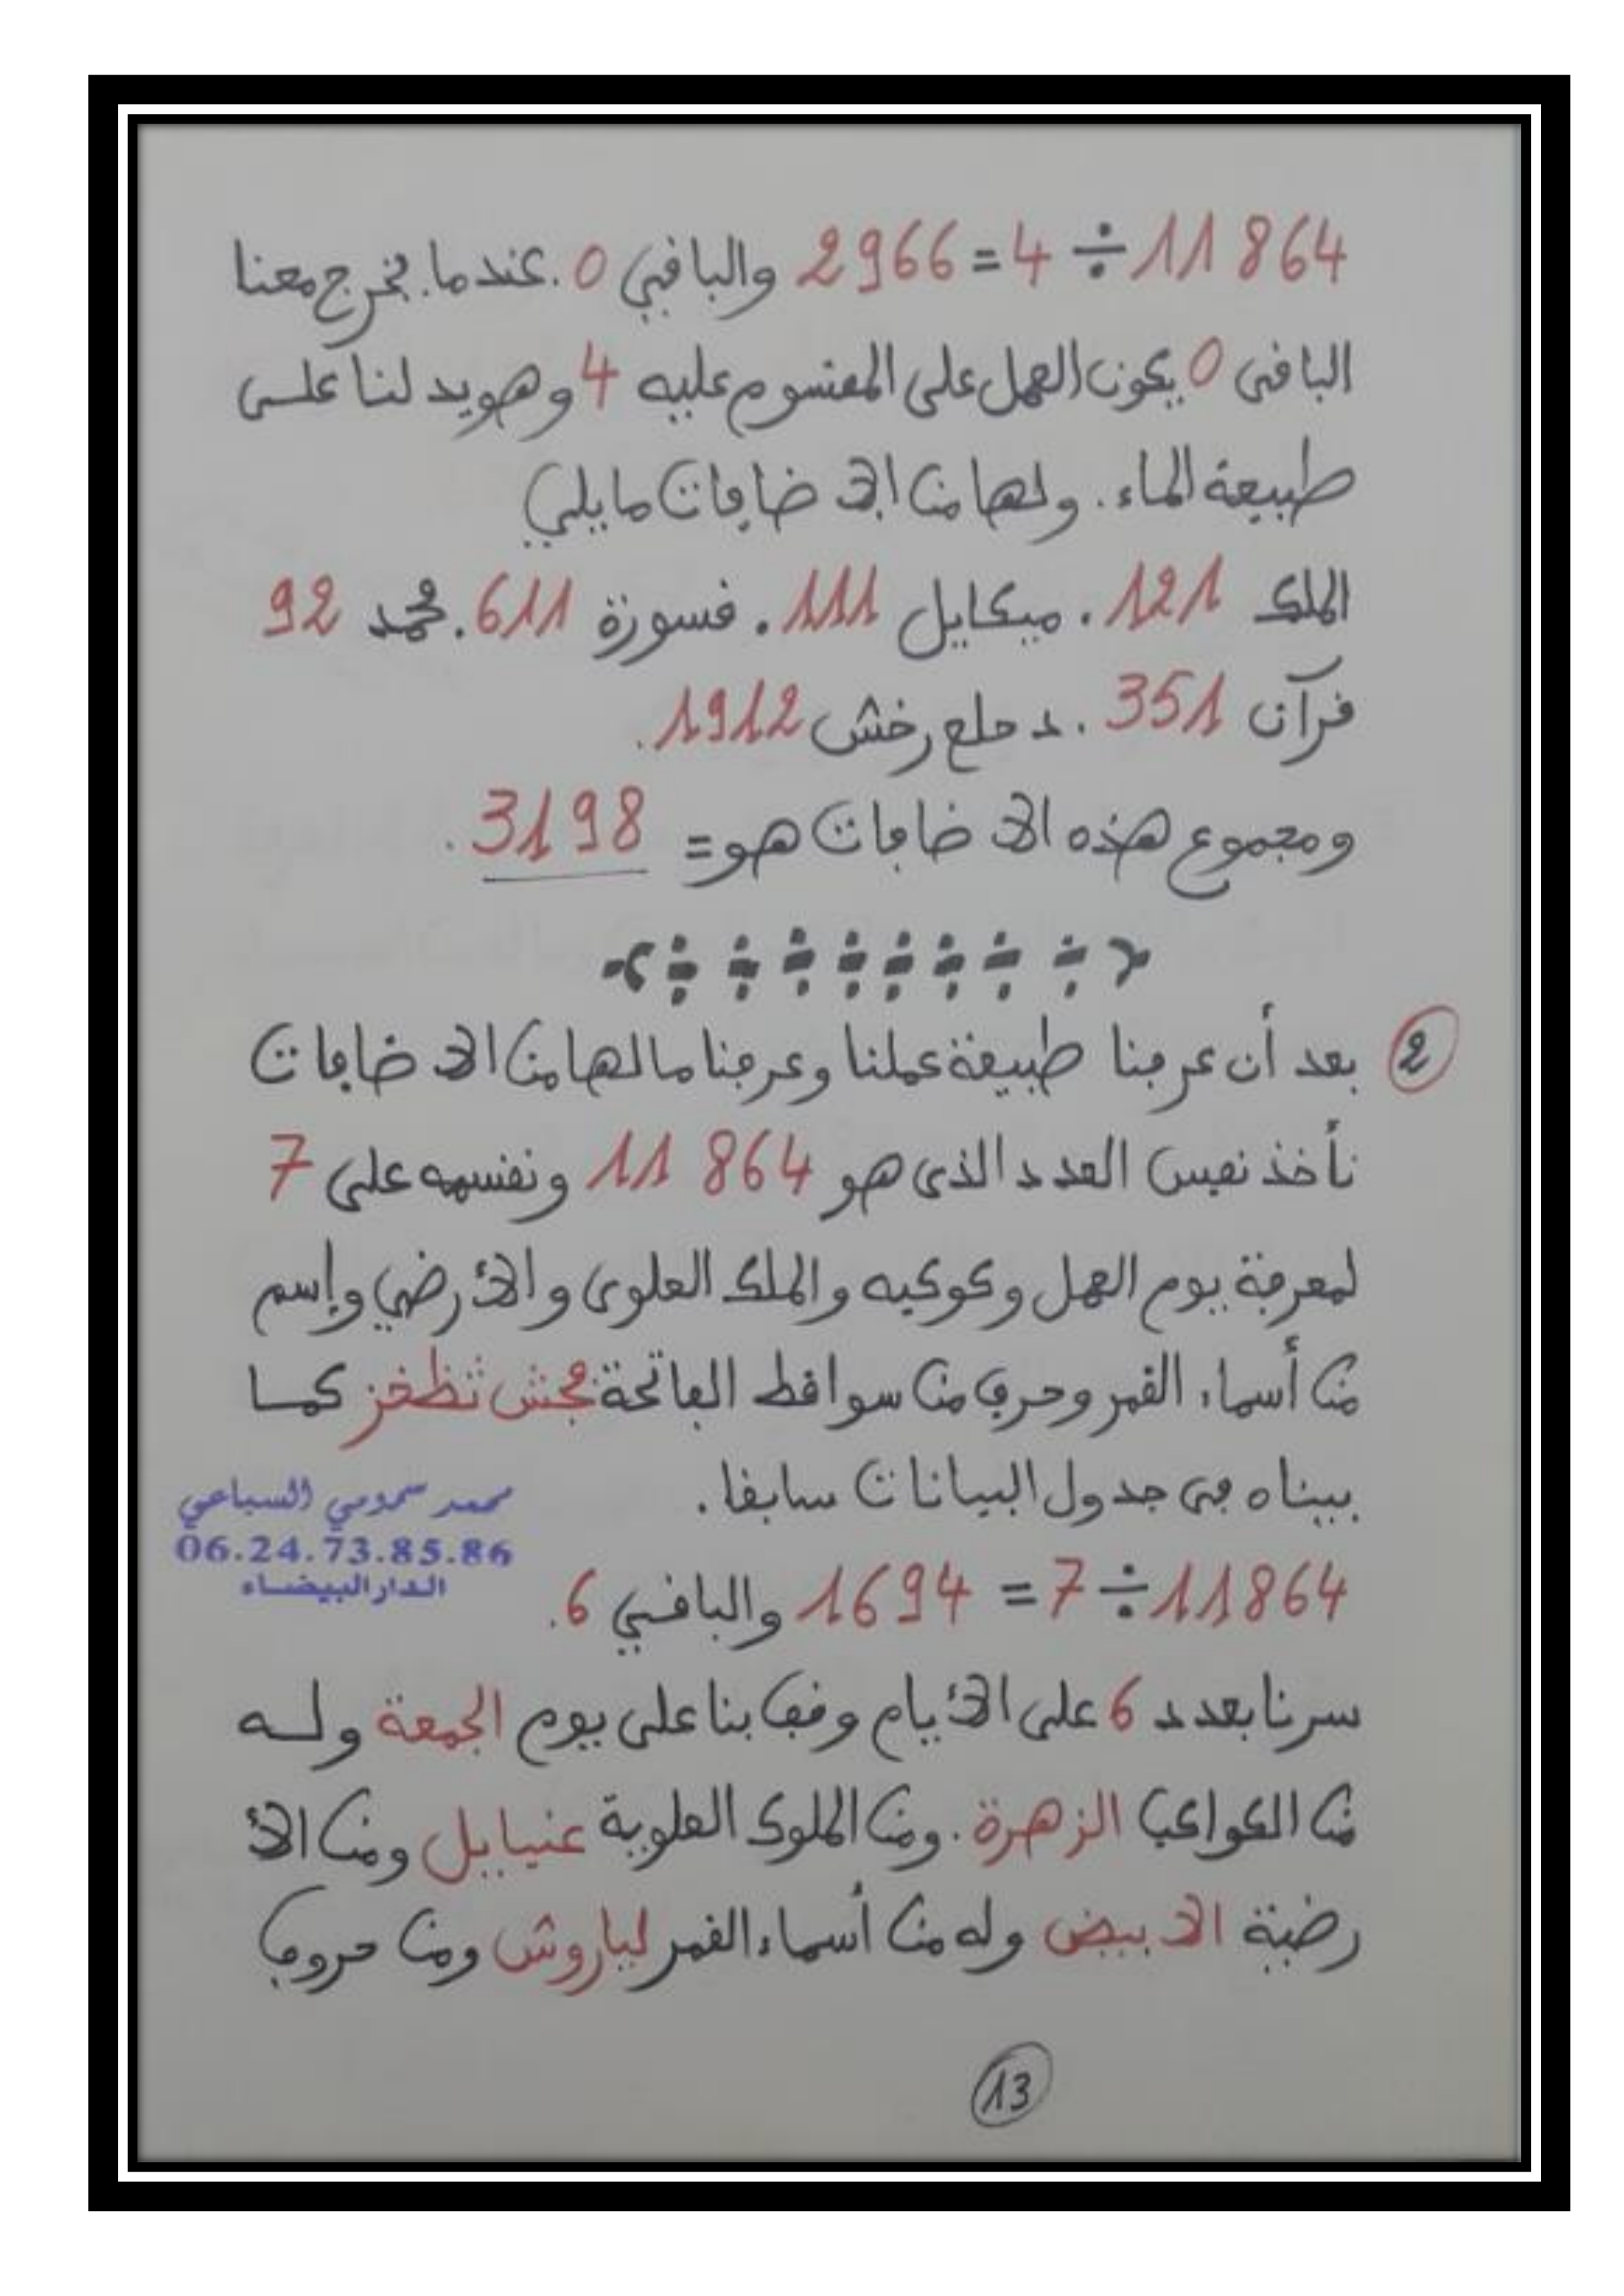 11864 ÷ 4 = 2966 والباقي 0. عندما يخرج معنا
الباقي 0 يكون العمل على المقسوم عليه 4 وهو يدلنا على
طبيعة الماء. ولها من الاضافات ما يلي
الملك 121. ميكايل 111. قسورة 611. محمد 92
قرآن 351. د حلع رخش 1912.
ومجموع هذه الاضافات هو = 3198.
② بعد أن عرفنا طبيعة عملنا وعرفنا ما لها من الاضافات
نأخذ نفس العدد الذي هو 11864 ونقسمه على 7
لمعرفة يوم العمل وكوكبه والملك العلوي والأرضي وإسم
من أسماء القمر وحرف من سواقط الفاتحة فجش ثظخز كما
بيناه في جدول البيانات سابقا.
محمد سمومي السباعي
06.24.73.85.86
الدار البيضاء
11864 ÷ 7 = 1694 والباقي 6.
سرنا بعدد 6 على الأيام وقف بنا على يوم الجمعة وله
من الكواكب الزهرة. ومن الملوك العلوية عنيايل ومن الأ
رضية الابيض وله من أسماء القمر لياروش ومن حروف
13